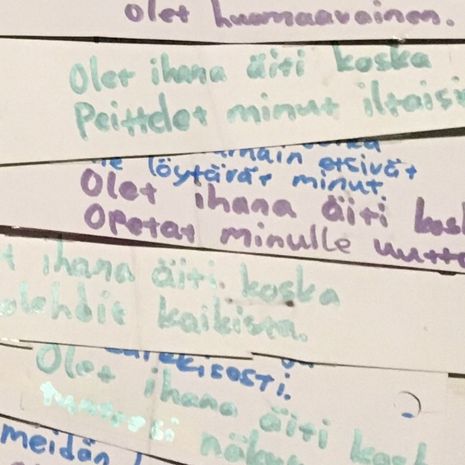 olet huomaavainen.
Olet ihana äiti koska
Peittelet minut iltaisi
löytävät minut
Olet ihana äiti kos
Opetat minulle uutt
ihana äiti. koska
olehdit kaikista.
Olet ihana äiti kosk
meidän